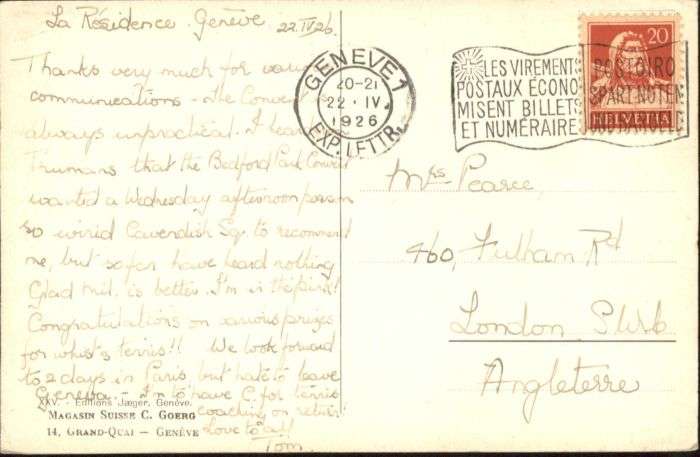 La Résidence. Genève 22.IV.26.
Thanks very much for various
communications - The Convent
always unpractical. I hear
Trumans that the Bedford Park Convent
wanted a Wednesday afternoon person
so wired Cavendish Sq. to recommend
me, but so far have heard nothing
Glad Mil. is better. I'm in the pink!
Congratulations on various prizes
for whist & tennis!! We look forward
to 2 days in Paris but hate to leave
Geneva - I'm to have C. for tennis
coaching on return
Love to all
Tom.
XXV. - Editions Jæger, Genève.
MAGASIN SUISSE C. GOERG
14, GRAND-QUAI — GENÈVE
GENÈVE 1
20-21
22.IV.
1926
EXP. LETTR.
LES VIREMENTS
POSTAUX ÉCONO
MISENT BILLETS
ET NUMÉRAIRE
POSTGIRO
SPART NOTEN
20
HELVETIA
Mrs Pearce,
460, Fulham Rd
London, S.W.6
Angleterre